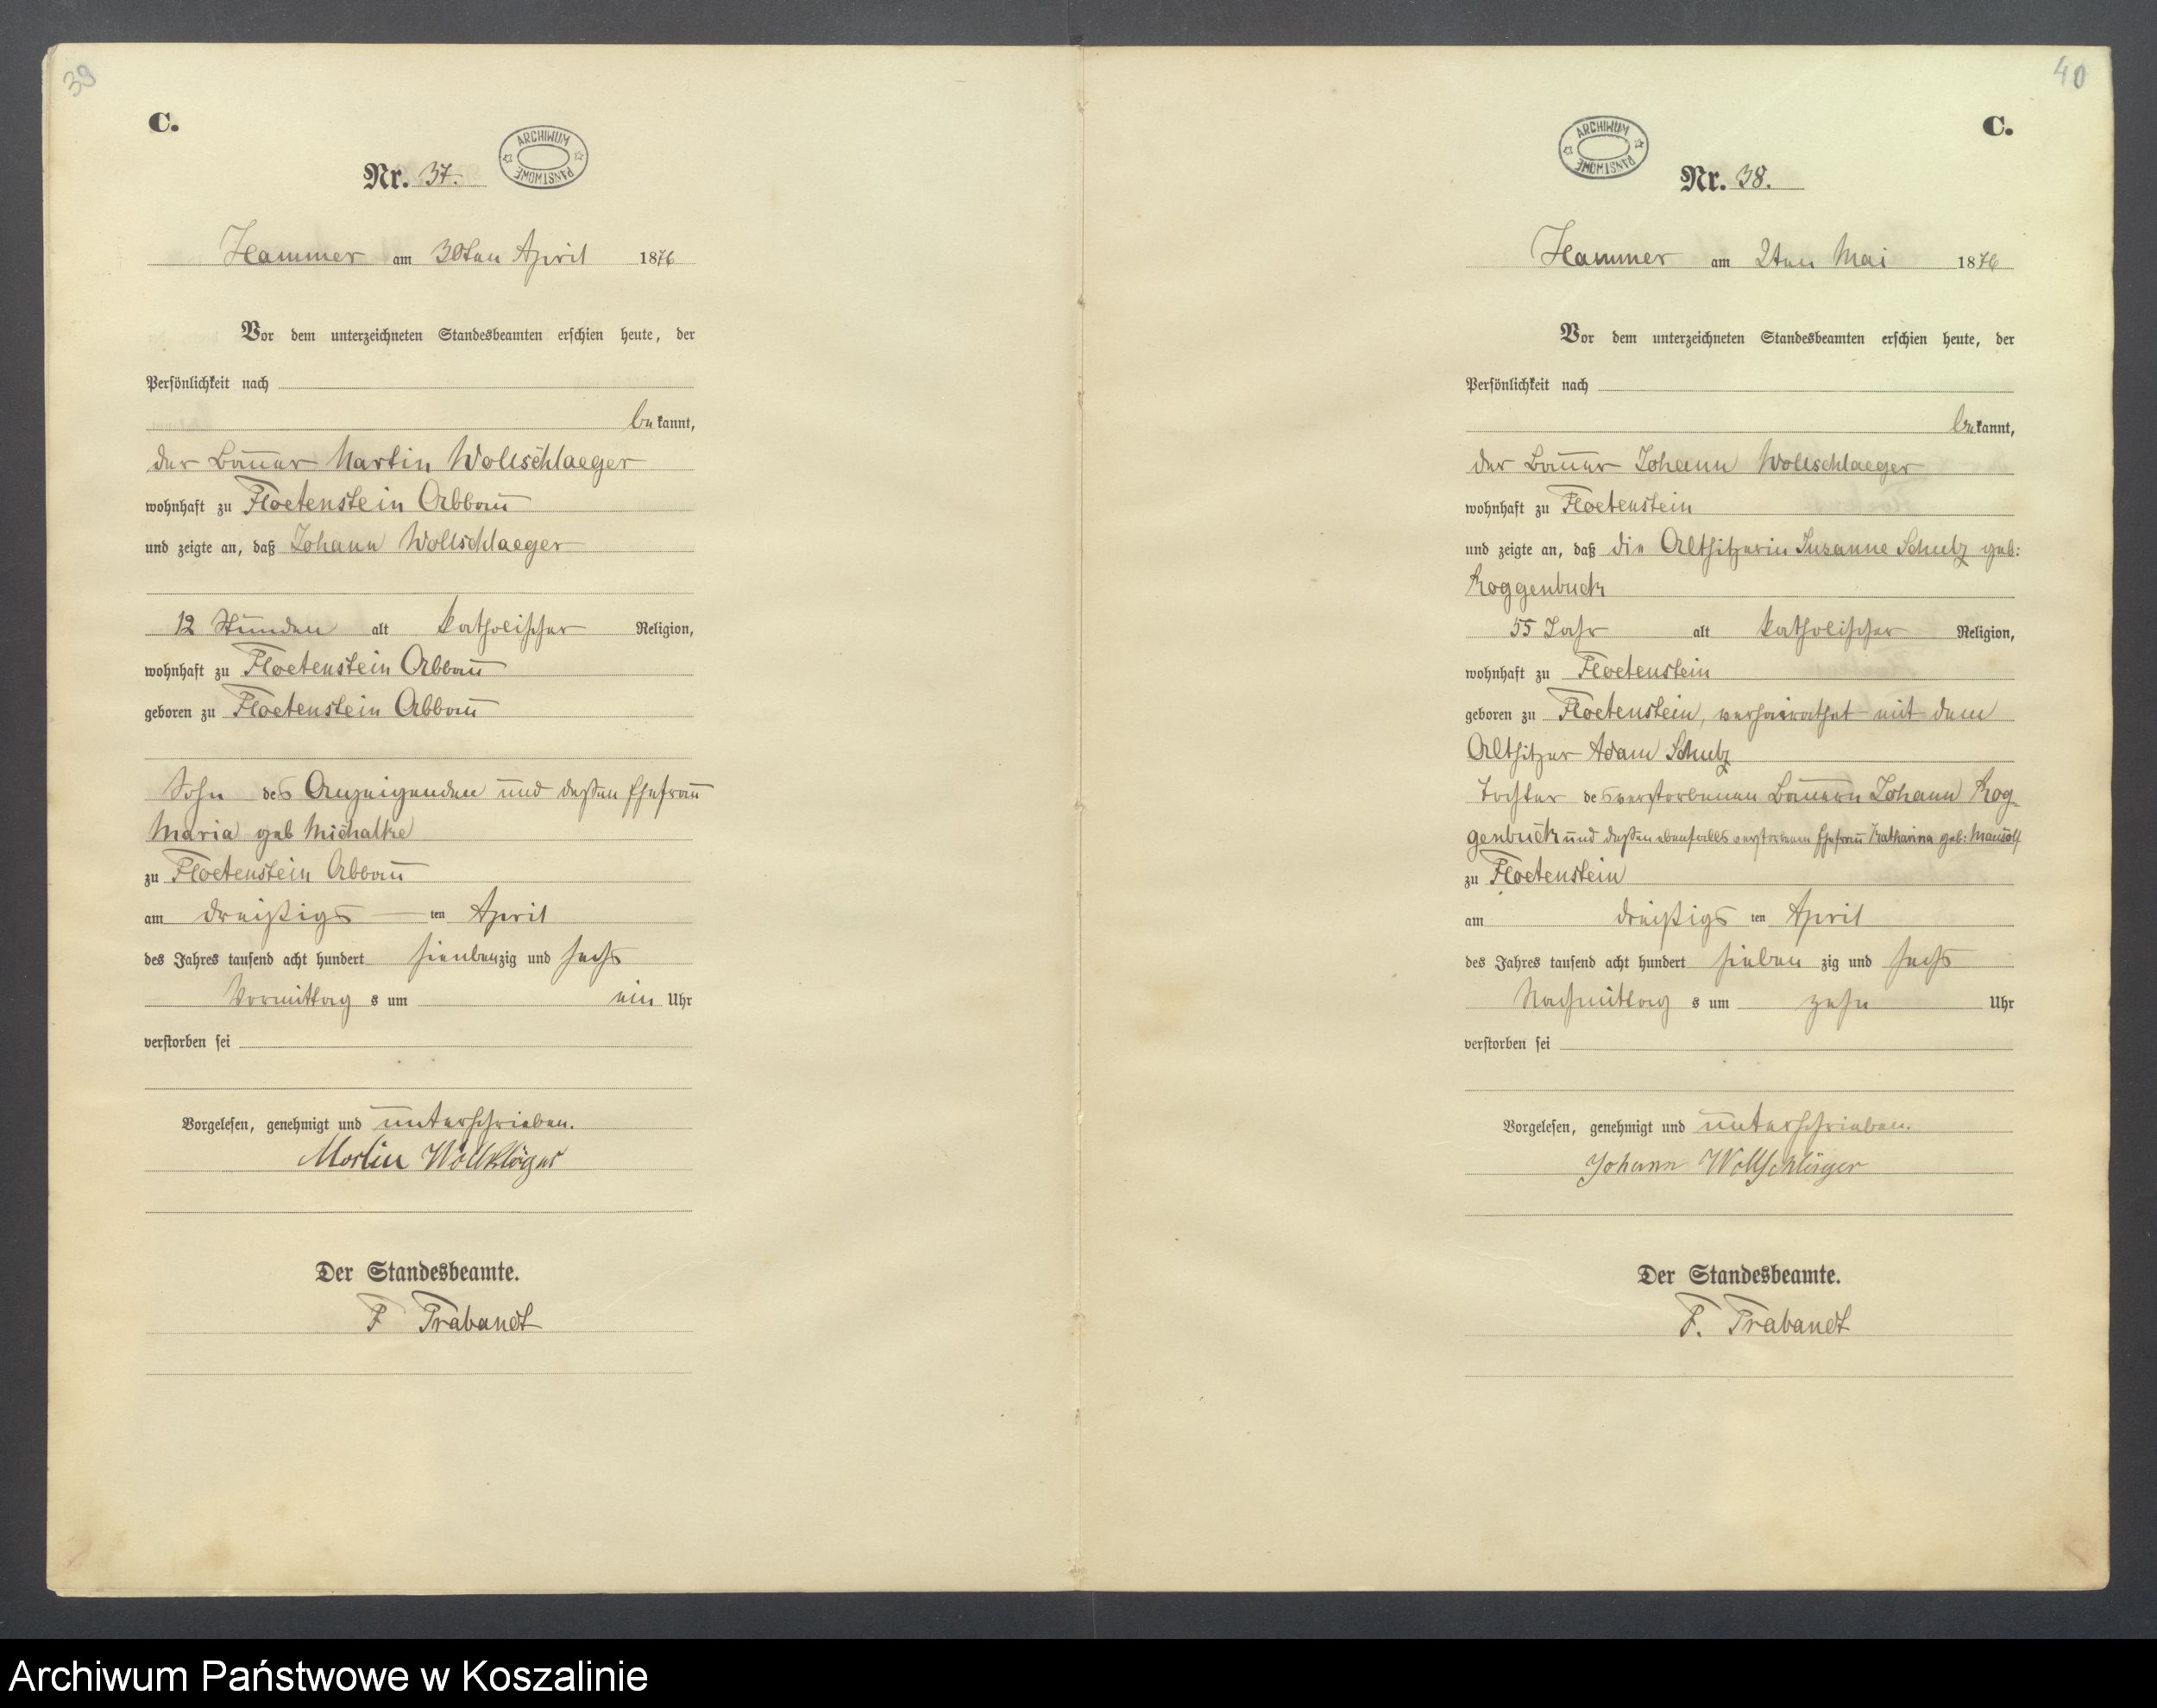 39
C.
ARCHIWUM PAŃSTWOWE
Nr. 37.
Hammer am 30ten April 1876
Vor dem unterzeichneten Standesbeamten erschien heute, der
Persönlichkeit nach
bekannt,
der Bauer Martin Wollschlaeger
wohnhaft zu Floetenstein Abbau
und zeigte an, daß Johann Wollschlaeger
12 Stunden alt katholischer Religion,
wohnhaft zu Floetenstein Abbau
geboren zu Floetenstein Abbau
Sohn des Anzeigenden und deßen Ehefrau
Maria geb Michalke
zu Floetenstein Abbau
am dreißigs ten April
des Jahres tausend acht hundert sienbenzig und sechs
Vormittag s um ein Uhr
verstorben sei
Vorgelesen, genehmigt und unterschrieben.
Martin
Der Standesbeamte.
F Trabandt
40
C.
ARCHIWUM PAŃSTWOWE
Nr. 38.
Hammer am 2ten Mai 1876
Vor dem unterzeichneten Standesbeamten erschien heute, der
Persönlichkeit nach
bekannt,
der Bauer Johann Wollschlaeger
wohnhaft zu Floetenstein
und zeigte an, daß die Altsitzerin Susanne Schulz geb:
Roggenbuck
55 Jahr alt katholischer Religion,
wohnhaft zu Floetenstein
geboren zu Floetenstein, verheirathet mit dem
Altsitzer Adam Schulz
Tochter des verstorbenen Bauern Johann Rog-
genbuck und deßen ebenfalls verstorbenen Ehefrau Katharina geb: Mausolf
zu Floetenstein
am dreißigs ten April
des Jahres tausend acht hundert sieben zig und sechs
Nachmittag s um zehn Uhr
verstorben sei
Vorgelesen, genehmigt und unterschrieben.
Johann Wollschläger
Der Standesbeamte.
F. Trabandt
Archiwum Państwowe w Koszalinie